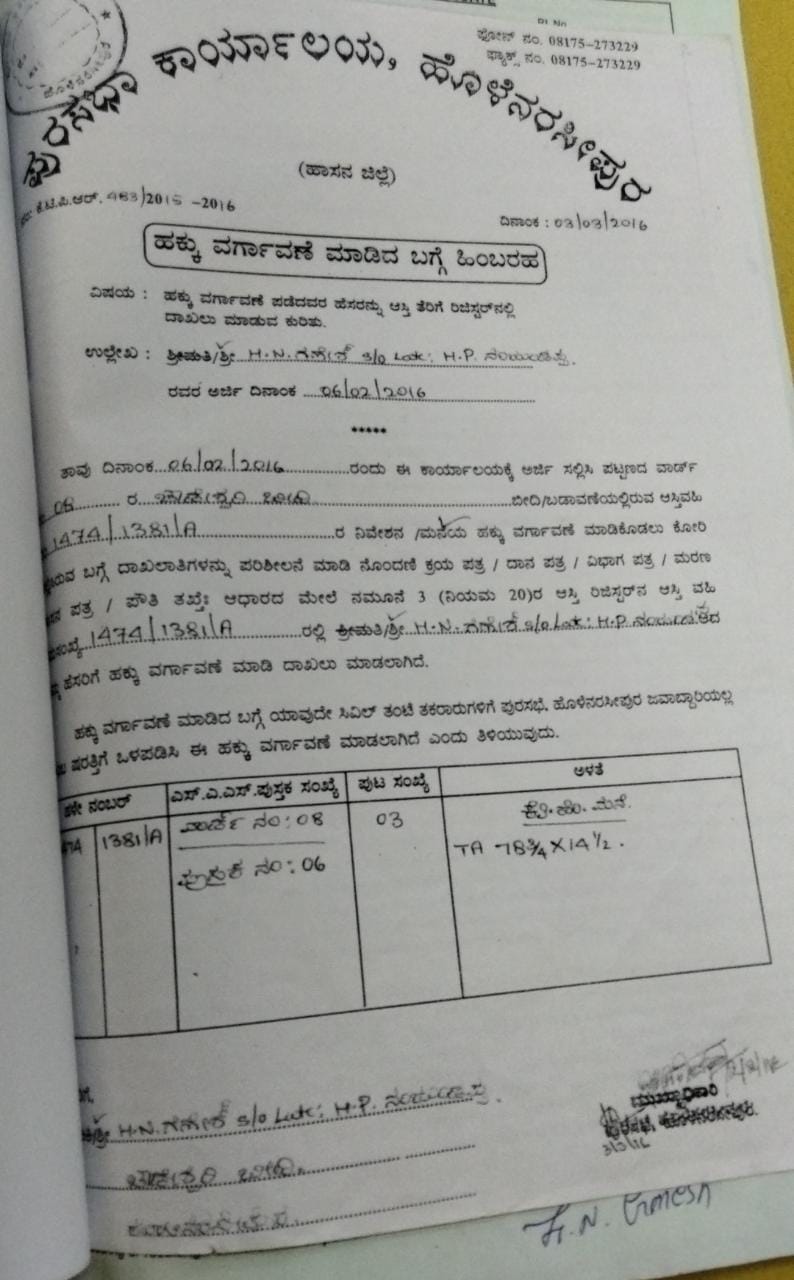 ಫೋನ್ ನಂ. 08175-273229
ಫ್ಯಾಕ್ಸ್ ನಂ. 08175-273229
ಪುರಸಭಾ ಕಾರ್ಯಾಲಯ, ಹೊಳೆನರಸೀಪುರ
(ಹಾಸನ ಜಿಲ್ಲೆ)
ಕೆ.ಟಿ.ಪಿ.ಆರ್. 483/2015-2016
ದಿನಾಂಕ : 03/03/2016
ಹಕ್ಕು ವರ್ಗಾವಣೆ ಮಾಡಿದ ಬಗ್ಗೆ ಹಿಂಬರಹ
ವಿಷಯ : ಹಕ್ಕು ವರ್ಗಾವಣೆ ಪಡೆದವರ ಹೆಸರನ್ನು ಆಸ್ತಿ ತೆರಿಗೆ ರಿಜಿಸ್ಟರ್‌ನಲ್ಲಿ
ದಾಖಲು ಮಾಡುವ ಕುರಿತು.
ಉಲ್ಲೇಖ : ಶ್ರೀಮತಿ/ಶ್ರೀ H.N. ಗಣೇಶ್ s/o Late: H.P. ನಂಜುಂಡಪ್ಪ.
ರವರ ಅರ್ಜಿ ದಿನಾಂಕ 06/02/2016
*****
ತಾವು ದಿನಾಂಕ 06/02/2016 ರಂದು ಈ ಕಾರ್ಯಾಲಯಕ್ಕೆ ಅರ್ಜಿ ಸಲ್ಲಿಸಿ ಪಟ್ಟಣದ ವಾರ್ಡ್
08 ರ ಬೀದಿ/ಬಡಾವಣೆಯಲ್ಲಿರುವ ಆಸ್ತಿವಹಿ
1474/1381/A ರ ನಿವೇಶನ /ಮನೆಯ ಹಕ್ಕು ವರ್ಗಾವಣೆ ಮಾಡಿಕೊಡಲು ಕೋರಿ
ಬಗ್ಗೆ ದಾಖಲಾತಿಗಳನ್ನು ಪರಿಶೀಲನೆ ಮಾಡಿ ನೊಂದಣಿ ಕ್ರಯ ಪತ್ರ / ದಾನ ಪತ್ರ / ವಿಭಾಗ ಪತ್ರ / ಮರಣ
ಪತ್ರ / ಪೌತಿ ತಖ್ತೆಃ ಆಧಾರದ ಮೇಲೆ ನಮೂನೆ 3 (ನಿಯಮ 20)ರ ಆಸ್ತಿ ರಿಜಿಸ್ಟರ್‌ನ ಆಸ್ತಿ ವಹಿ
1474/1381/A ರಲ್ಲಿ ಶ್ರೀಮತಿ/ಶ್ರೀ H.N. ಗಣೇಶ್ s/o Late: H.P. ನಂಜುಂಡಪ್ಪ
ಹೆಸರಿಗೆ ಹಕ್ಕು ವರ್ಗಾವಣೆ ಮಾಡಿ ದಾಖಲು ಮಾಡಲಾಗಿದೆ.
ಹಕ್ಕು ವರ್ಗಾವಣೆ ಮಾಡಿದ ಬಗ್ಗೆ ಯಾವುದೇ ಸಿವಿಲ್ ತಂಟೆ ತಕರಾರುಗಳಿಗೆ ಪುರಸಭೆ, ಹೊಳೆನರಸೀಪುರ ಜವಾಬ್ದಾರಿಯಲ್ಲ
ಷರತ್ತಿಗೆ ಒಳಪಡಿಸಿ ಈ ಹಕ್ಕು ವರ್ಗಾವಣೆ ಮಾಡಲಾಗಿದೆ ಎಂದು ತಿಳಿಯುವುದು.
ನಂಬರ್ ಎಸ್.ಎ.ಎಸ್.ಪುಸ್ತಕ ಸಂಖ್ಯೆ ಪುಟ ಸಂಖ್ಯೆ ಅಳತೆ
1381/A ವಾರ್ಡ್ ನಂ: 08 03 ಮನೆ.
ಪುಸ್ತಕ ನಂ: 06 TA 78¾ X 14½.
H.N. ಗಣೇಶ್ s/o Late: H.P. ನಂಜುಂಡಪ್ಪ.
ಮುಖ್ಯಾಧಿಕಾರಿ
ಪುರಸಭೆ, ಹೊಳೆನರಸೀಪುರ.
3/3/16